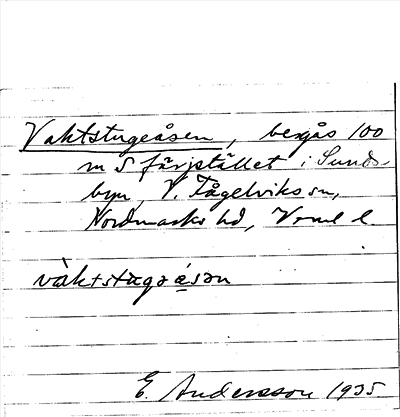 Vaktstugeåsen, bergås 100
m S färjstället i Sunds-
byn, V. Fågelviks sn,
Nordmarks hd, Vrml l.
vàktstugəåsən
E. Andersson 1935